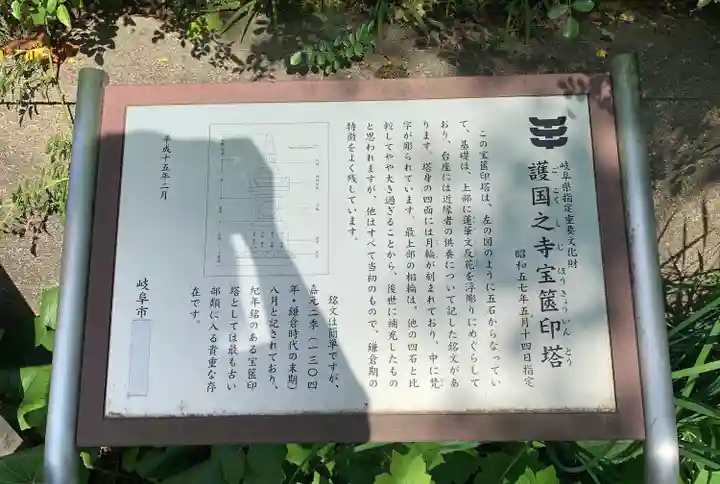 岐阜県指定重要文化財
護国之寺宝篋印塔
ごこくしじほうきょういんとう
昭和五七年五月十四日指定
この宝篋印塔は、左の図のように五石からなってい
て、基礎は、上部に蓮華文反花を浮彫りにめぐらして
おり、台座には近縁者の供養について記した銘文があ
ります。塔身の四面には月輪が刻まれており、中に梵
字が彫られています。最上部の相輪は、他の四石と比
較してやや大き過ぎることから、後世に補充したもの
と思われますが、他はすべて当初のもので、鎌倉期の
特徴をよく残しています。
銘文は簡単ですが、
嘉元二季(一三〇四
年・鎌倉時代の末期)
八月と記されており、
紀年銘のある宝篋印
塔としては最も古い
部類に入る貴重な存
在です。
平成十五年二月
岐阜市